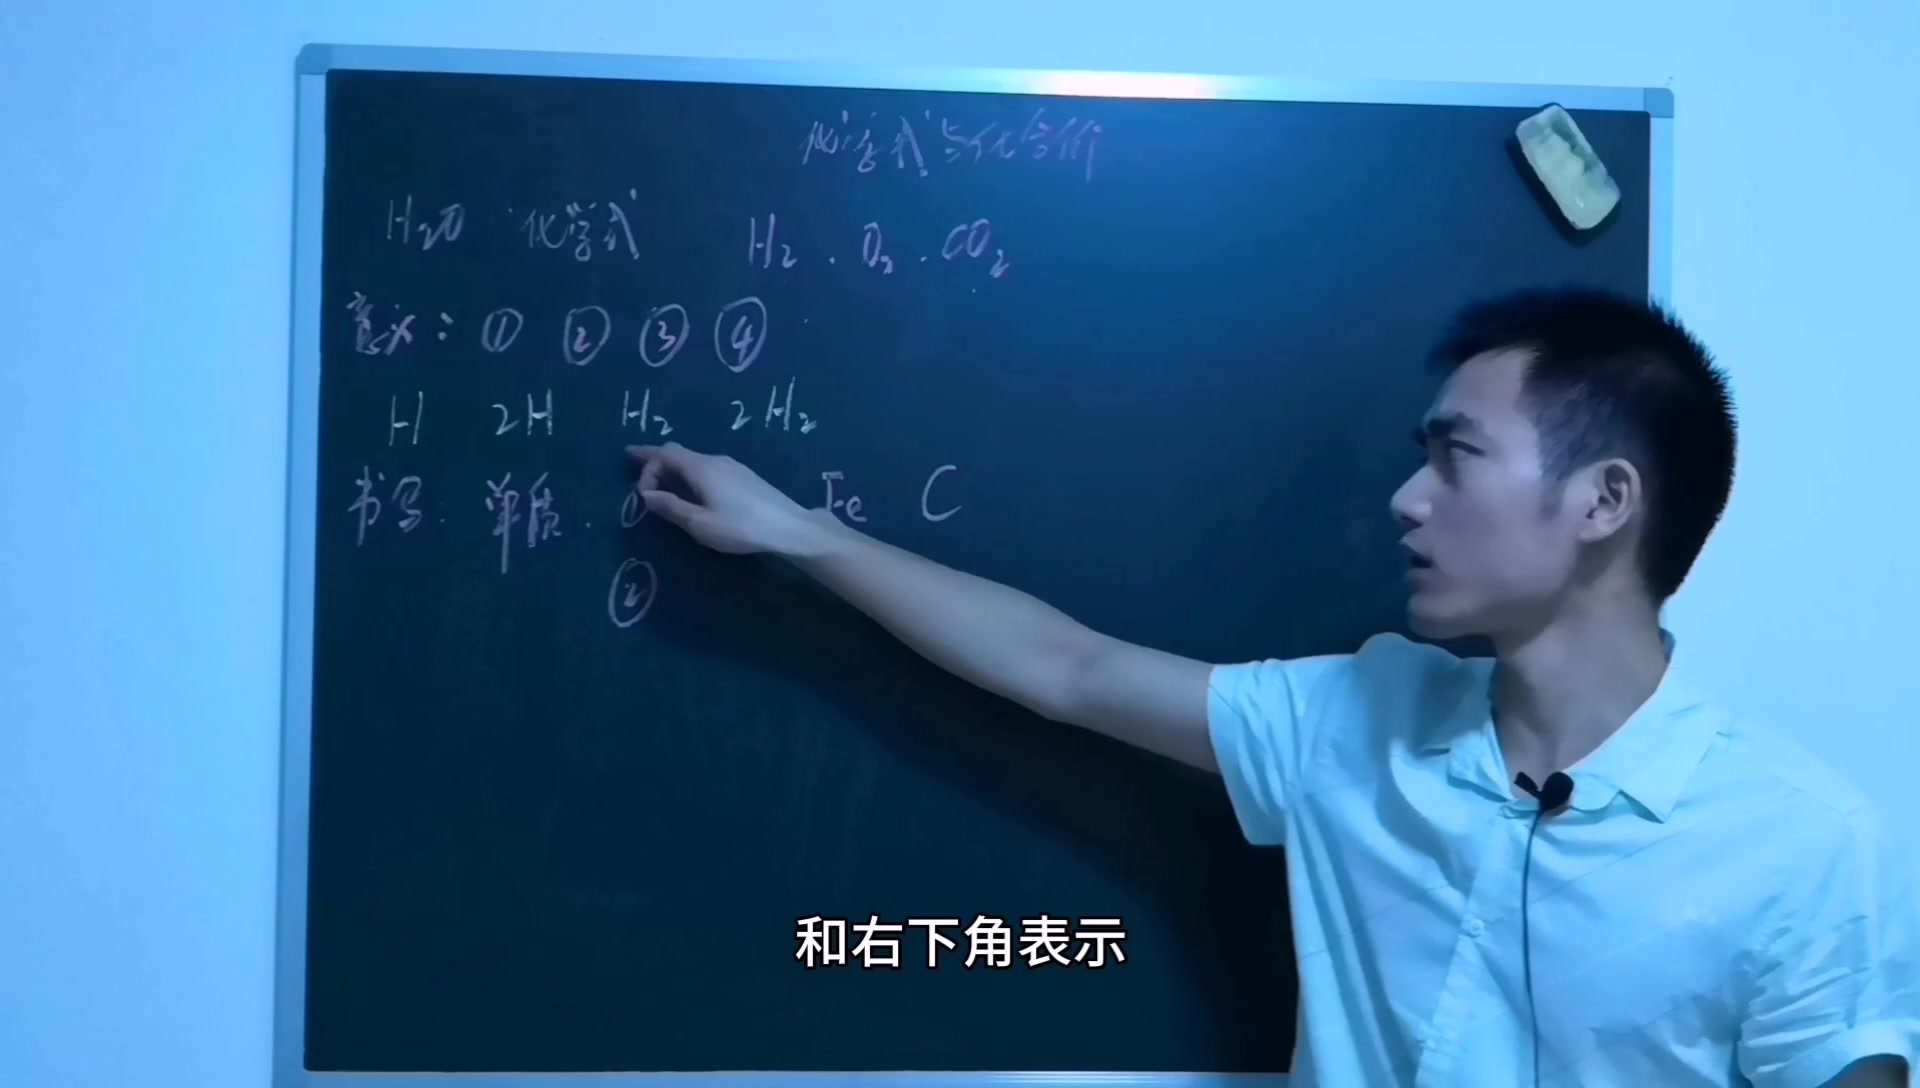 化学式与化合价
H₂O 化学式 H₂ . O₂ . CO₂
意义: ① ② ③ ④
H 2H H₂ 2H₂
书写: 单质. ① Fe C
②
和右下角表示